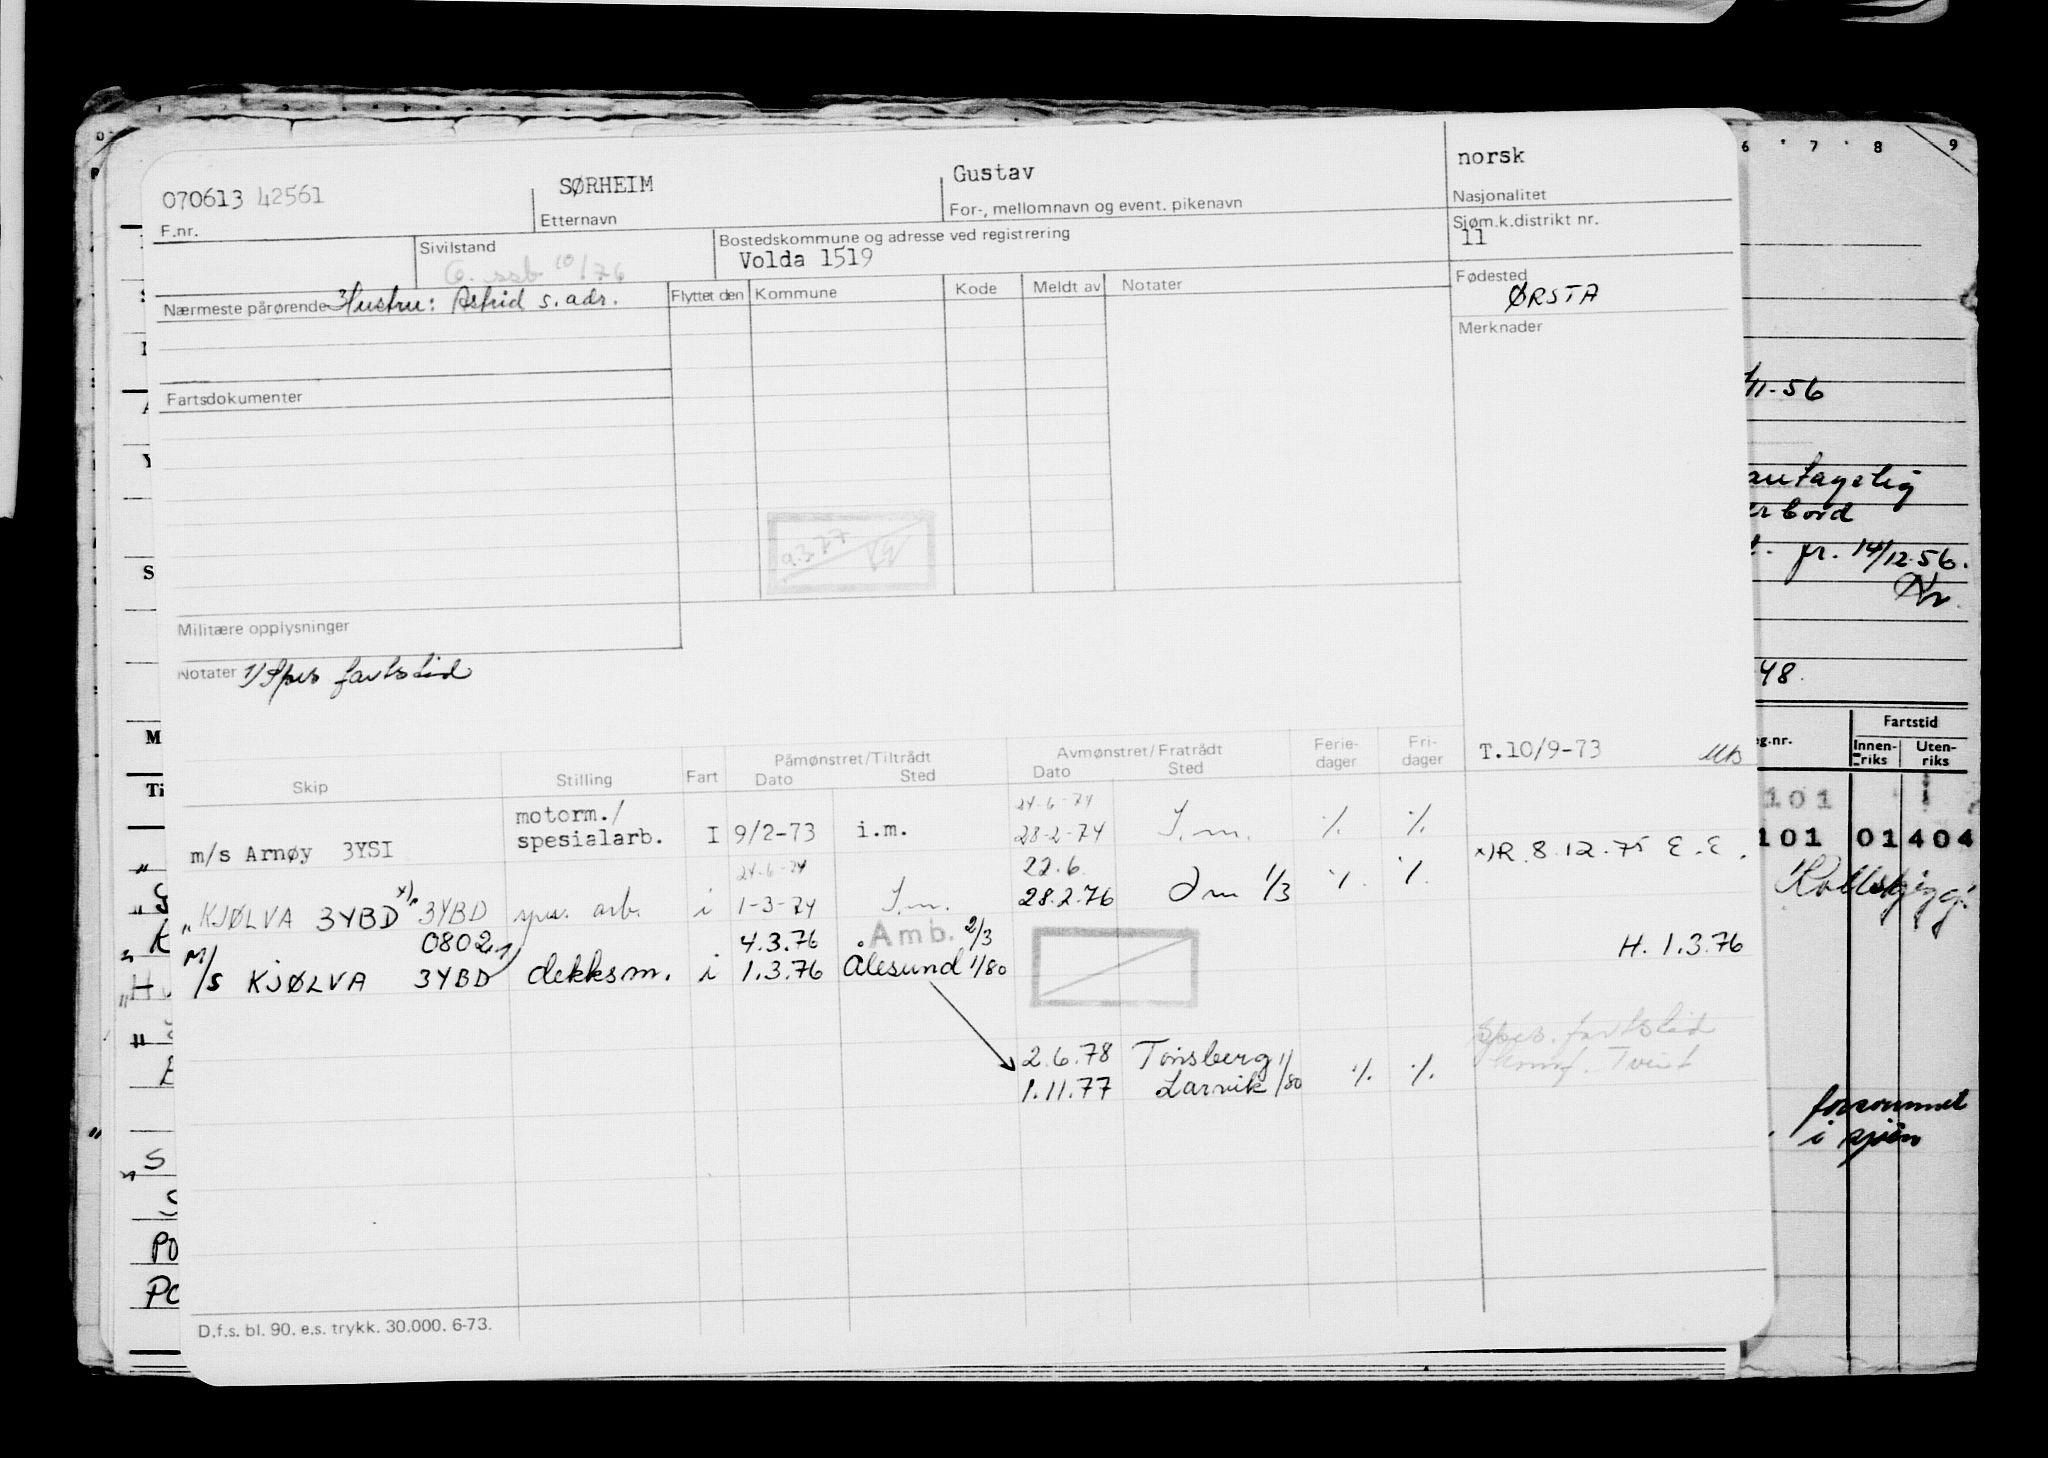 070613 42561
F.nr.
SØRHEIM
Etternavn
Gustav
For-, mellomnavn og event. pikenavn
norsk
Nasjonalitet
Sivilstand
G. ssb 10/76
Bostedskommune og adresse ved registrering
Volda 1519
Sjøm.k.distrikt nr.
11
Nærmeste pårørende Hustru: Astrid s. adr.
Flyttet den Kommune Kode Meldt av Notater
Fødested
ØRSTA
Merknader
Fartsdokumenter
9.3.77
Militære opplysninger
Notater 1) Spes fartstid
Skip Stilling Fart Påmønstret/Tiltrådt Dato Sted Avmønstret/Fratrådt Dato Sted Ferie-dager Fri-dager
T.10/9-73
m/s Arnøy 3YSI motorm./ spesialarb. I 9/2-73 i.m. 24-6-74 28-2-74 I.m. ./. ./.
x) R. 8.12.75 E.E.
" KJØLVA 3YBD x) 3YBD spes. arb. i 24-6-74 1-3-74 I.m. 22.6. 28.2.76 Im 1/3 ./. ./.
0802 4.3.76 Amb. 2/3
H. 1.3.76
M/S KJØLVA 3YBD 1) dekksm. i 1.3.76 Ålesund 1/80
Spes. fartstid
2.6.78 Tønsberg 1/
1.11.77 Larvik 1/80 ./. ./.
D.f.s. bl. 90. e.s. trykk. 30.000. 6-73.
6 7 8 9
11-56
antagelig
bord
fr. 14/12-56.
48.
eg.nr.
Fartstid
Innen-riks
Uten-riks
101
101 01 404
forsommet
i sjøen
M
Ti
S
PO
PO